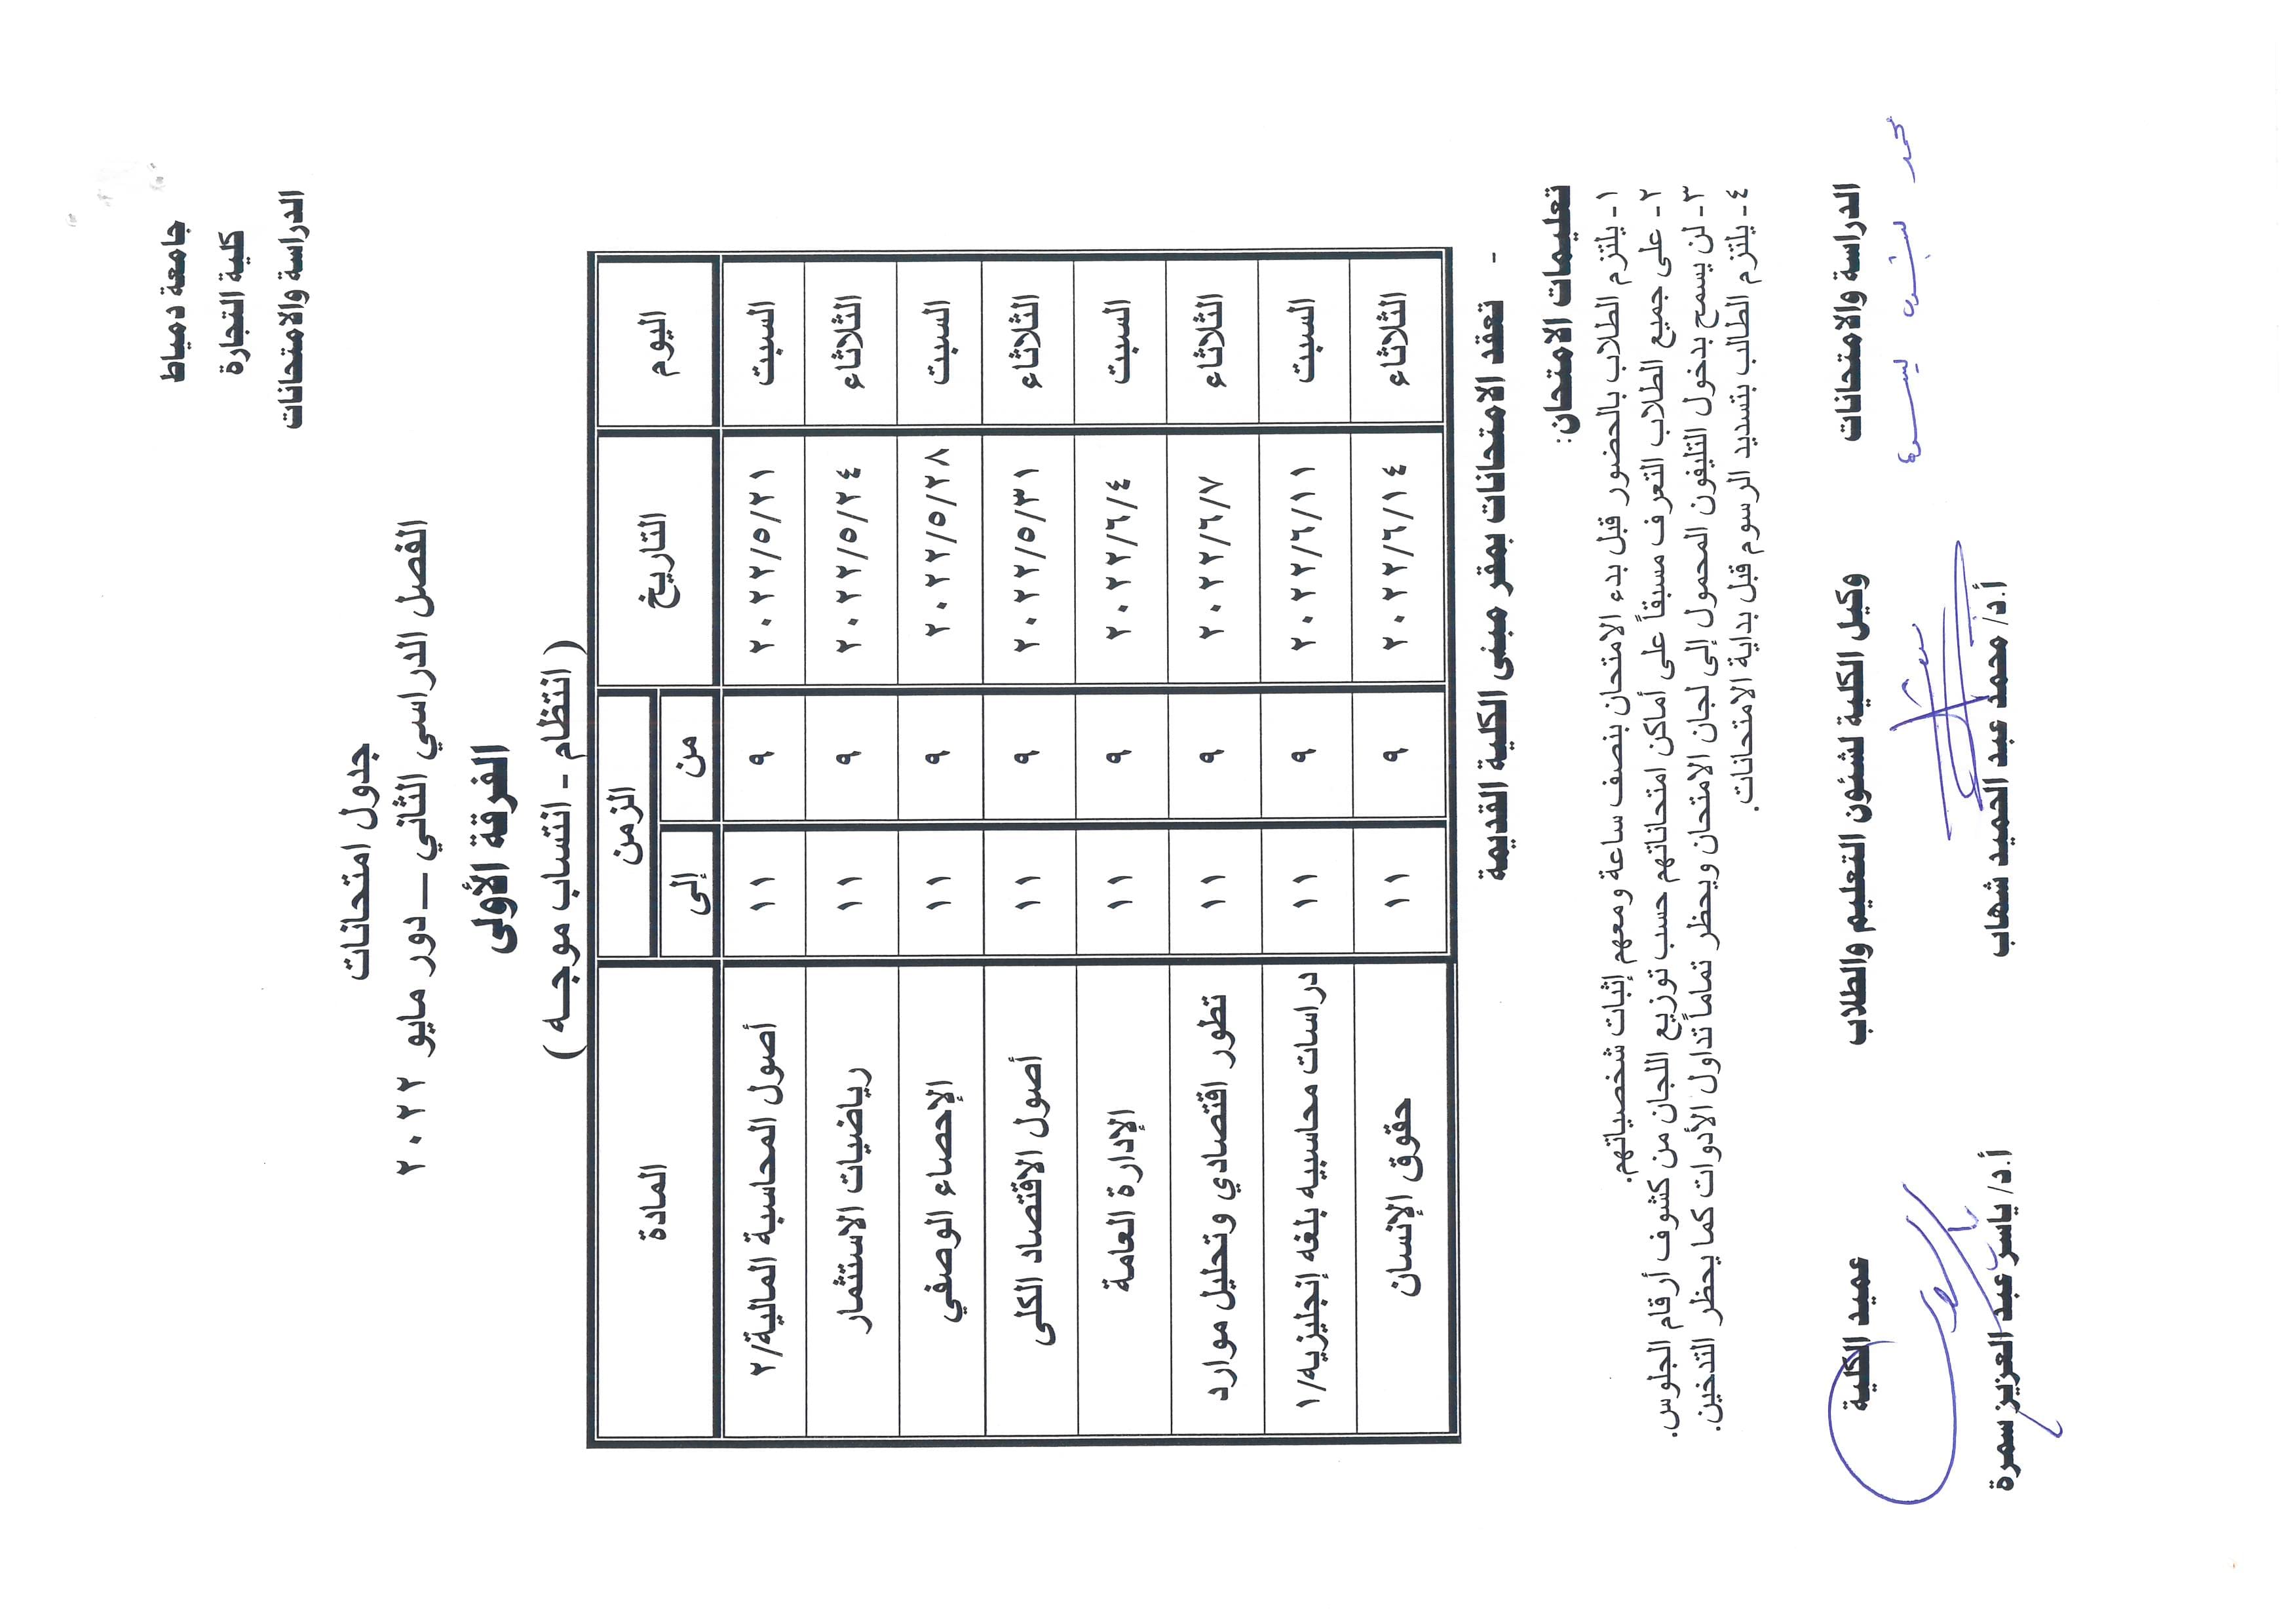 جامعة دمياط
كلية التجارة
الدراسة والامتحانات
جدول امتحانات
الفصل الدراسي الثاني – دور مايو ٢٠٢٢
الفرقة الأولى
( انتظام - انتساب موجه )
اليوم التاريخ الزمن المادة
من إلى
السبت ٢٠٢٢/٥/٢١ ٩ ١١ أصول المحاسبة المالية/٢
الثلاثاء ٢٠٢٢/٥/٢٤ ٩ ١١ رياضيات الاستثمار
السبت ٢٠٢٢/٥/٢٨ ٩ ١١ الإحصاء الوصفي
الثلاثاء ٢٠٢٢/٥/٣١ ٩ ١١ أصول الاقتصاد الكلى
السبت ٢٠٢٢/٦/٤ ٩ ١١ الإدارة العامة
الثلاثاء ٢٠٢٢/٦/٧ ٩ ١١ تطور اقتصادي وتحليل موارد
السبت ٢٠٢٢/٦/١١ ٩ ١١ دراسات محاسبيه بلغه إنجليزيه/١
الثلاثاء ٢٠٢٢/٦/١٤ ٩ ١١ حقوق الإنسان
- تعقد الامتحانات بمقر مبنى الكلية القديمة
تعليمات الامتحان:
١- يلتزم الطلاب بالحضور قبل بدء الامتحان بنصف ساعة ومعهم إثبات شخصياتهم.
٢- على جميع الطلاب التعرف مسبقاً على أماكن امتحاناتهم حسب توزيع اللجان من كشوف أرقام الجلوس.
٣- لن يسمح بدخول التليفون المحمول إلى لجان الامتحان ويحظر تماماً تداول الأدوات كما يحظر التدخين.
٤- يلتزم الطالب بتسديد الرسوم قبل بداية الامتحانات.
الدراسة والامتحانات وكيل الكلية لشئون التعليم والطلاب عميد الكلية
أ.د/ محمد عبد الحميد شهاب أ.د/ ياسر عبد العزيز سمرة